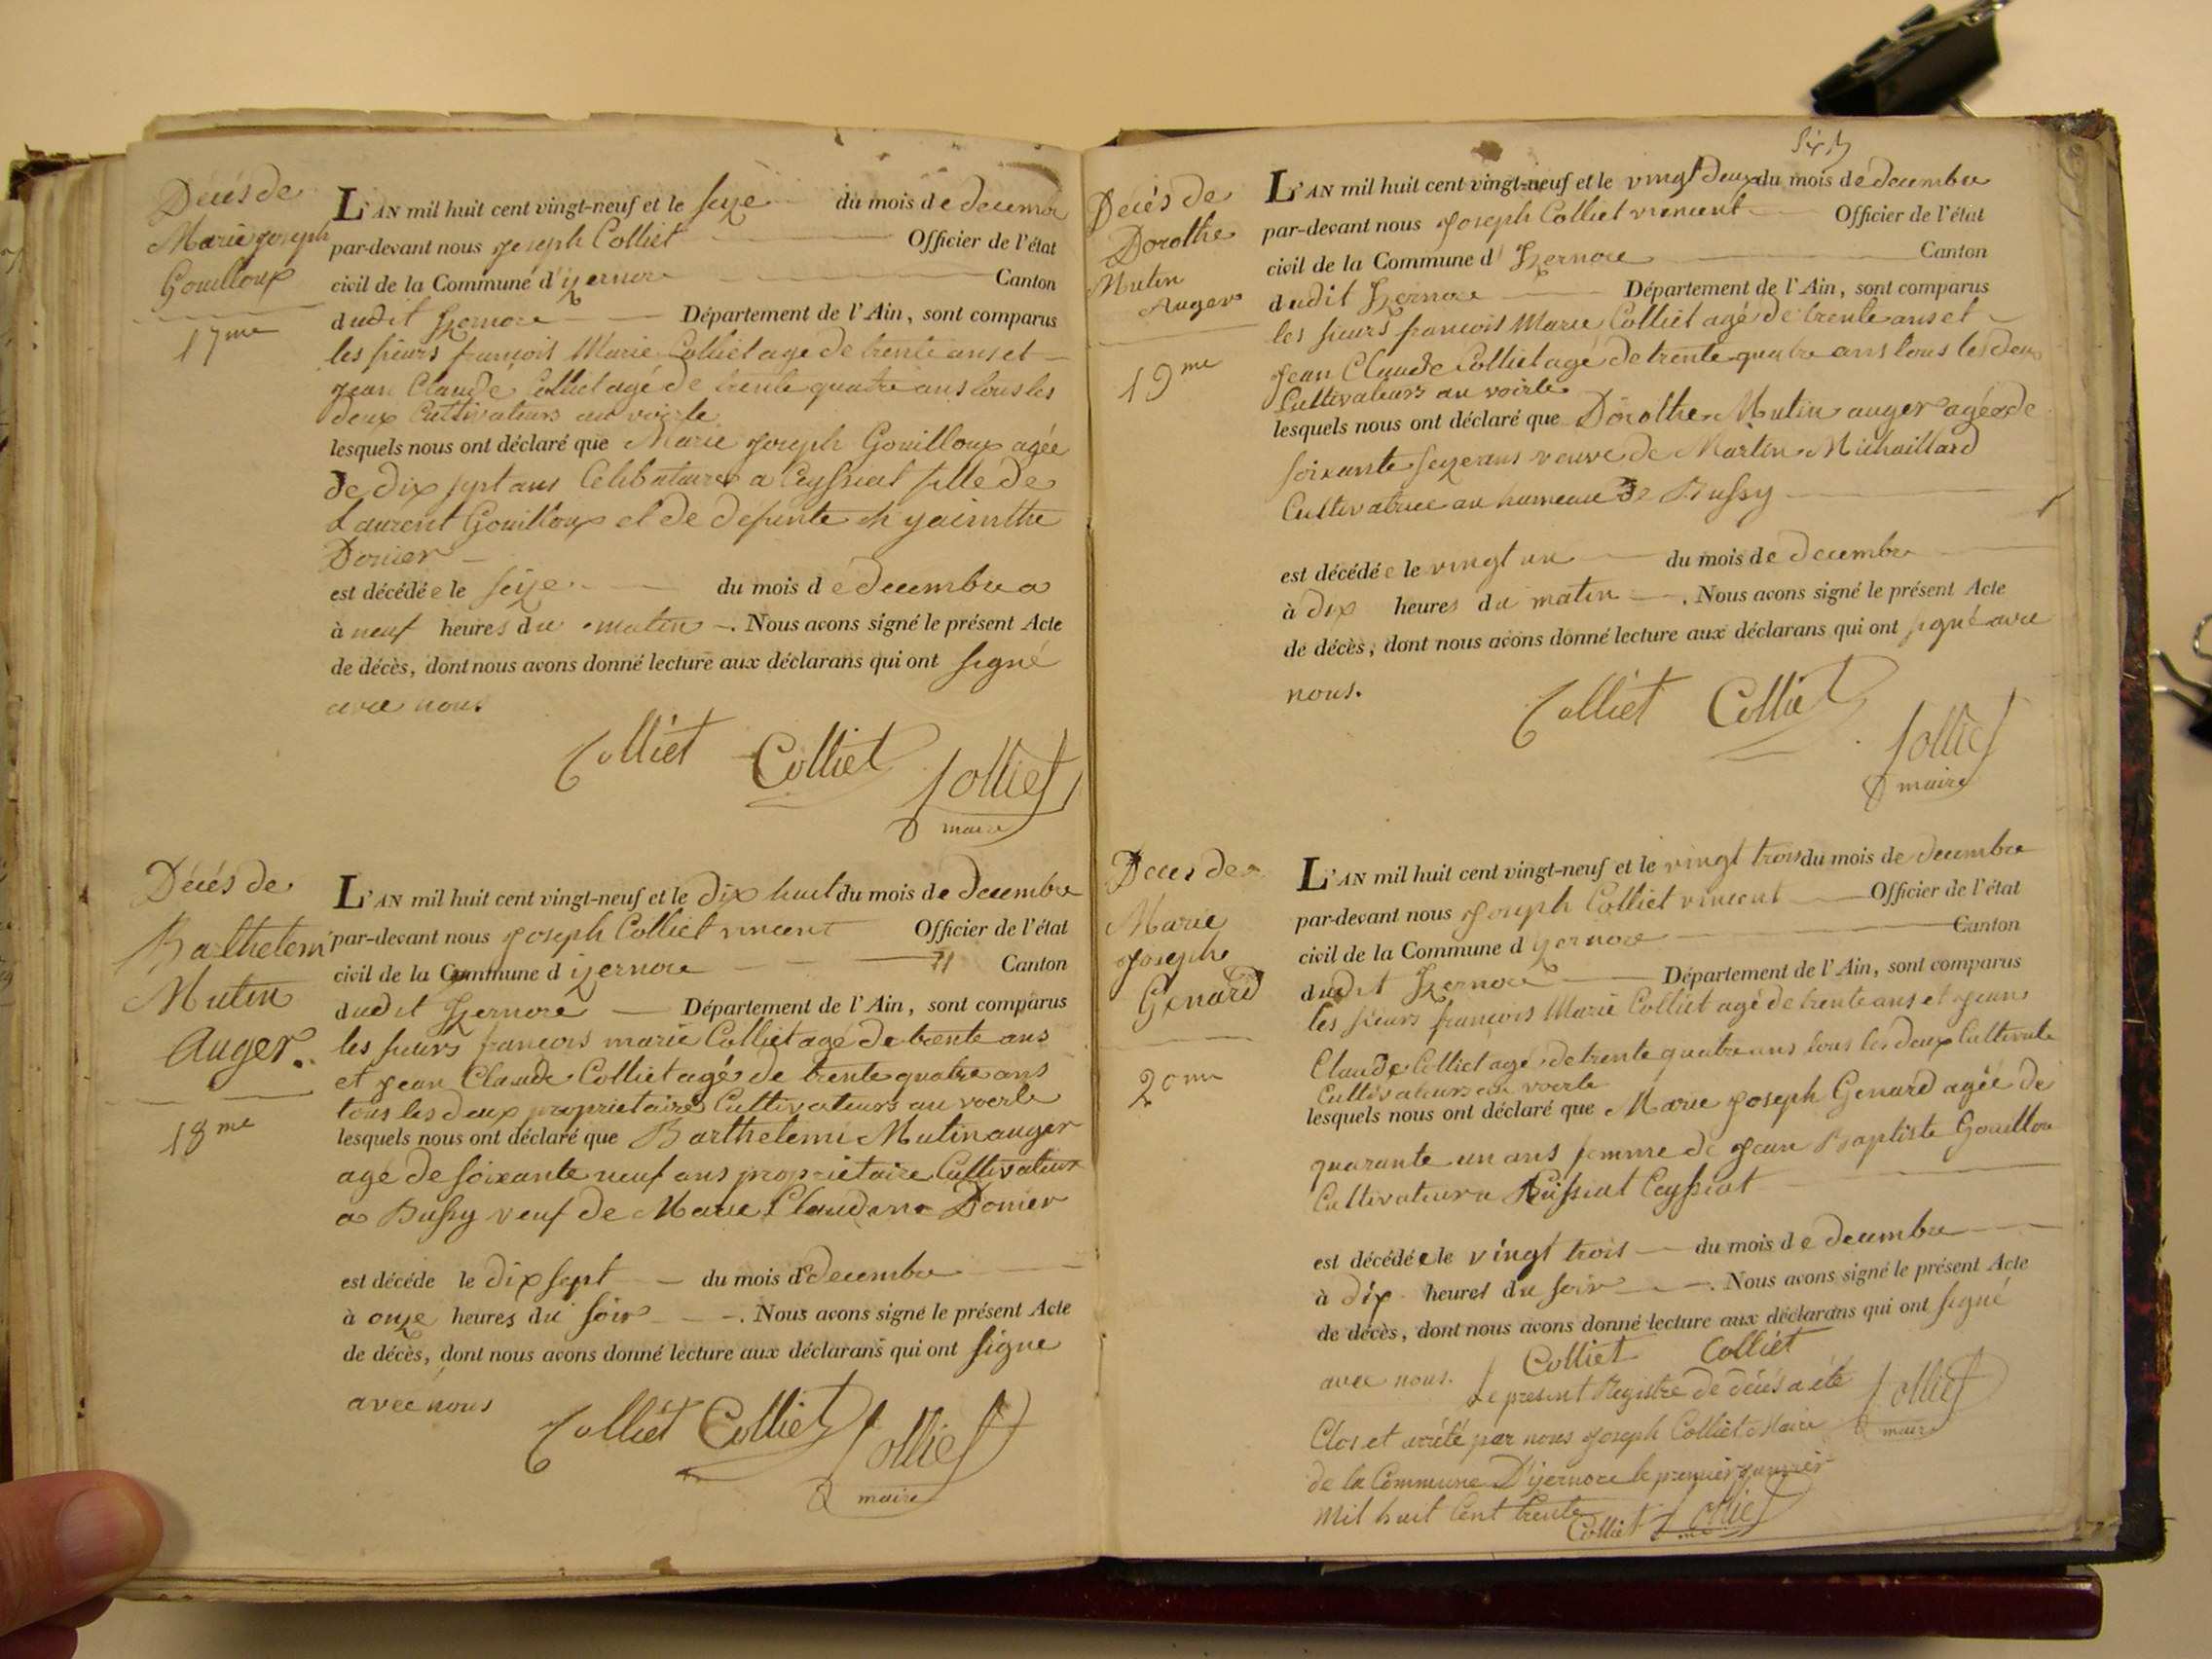 Décés de
Marie joseph
Gouilloux
17me
L'AN mil huit cent vingt-neuf et le seize du mois de decembre
par-devant nous joseph Colliet Officier de l'état
civil de la Commune d'izernore Canton
dudit Izernore Département de l'Ain, sont comparus
les sieurs francois Marie Colliet agé de trente ans et
jean Claude Colliet agé de trente quatre ans tous les
deux Cultivateurs au voerle
lesquels nous ont déclaré que Marie joseph Gouilloux agée
de dix sept ans Celibataire a Ceyssiat fille de
Laurent Gouilloux et de defunte hyacinthe
Donier
est décédée le seize du mois de decembre a
à neuf heures du matin. Nous avons signé le présent Acte
de décès, dont nous avons donné lecture aux déclarans qui ont signé
avec nous
Colliet Colliet Colliet
maire
Décés de
Barthelemi
Mutin
Auger.
18me
L'AN mil huit cent vingt-neuf et le dix huit du mois de decembre
par-devant nous joseph Colliet vincent Officier de l'état
civil de la Commune d izernore Canton
dudit Izernore Département de l'Ain, sont comparus
les sieurs francois marie Colliet agé de trente ans
et jean Claude Colliet agé de trente quatre ans
tous les deux proprietaires Cultivateurs au voerle
lesquels nous ont déclaré que Barthelemi Mutin auger
agé de soixante neuf ans proprietaire Cultivateur
a Bussy veuf de Marie Claudine Donier
est décédé le dix sept du mois de decembre
à onze heures du soir. Nous avons signé le présent Acte
de décès, dont nous avons donné lecture aux déclarans qui ont signe
avec nous
Colliet Colliet Colliet
maire
Decés de
Dorothe
Mutin
Auger
19me
L'AN mil huit cent vingt-neuf et le vingt deux du mois de decembre
par-devant nous joseph Colliet vincent Officier de l'état
civil de la Commune d' Izernore Canton
dudit Izernore Département de l'Ain, sont comparus
les sieurs francois Marie Colliet agé de trente ans et
jean Claude Colliet agé de trente quatre ans tous les deux
Cultivateurs au voerle
lesquels nous ont déclaré que Dorothe Mutin auger agée de
soixante seize ans veuve de Martin Michaillard
Cultivatrice au hameau de Bussy
est décédée le vingt un du mois de decembre
à dix heures du matin. Nous avons signé le présent Acte
de décès, dont nous avons donné lecture aux déclarans qui ont signé avec
nous.
Colliet Colliet
Colliet
maire
Deces de
Marie
Joseph
Genard
20me
L'AN mil huit cent vingt-neuf et le vingt trois du mois de decembre
par-devant nous joseph Colliet vincent Officier de l'état
civil de la Commune d izernore Canton
dudit Izernore Département de l'Ain, sont comparus
les sieurs francois Marie Colliet agé de trente ans et jean
Claude Colliet agé de trente quatre ans tous les deux Cultivate
Cultivateurs au voerle
lesquels nous ont déclaré que Marie joseph Genard agée de
quarante un ans femme de jean Baptiste Gouilloux
Cultivateur a Ceyssiat
est décédée le vingt trois du mois de decembre
à dix heures du soir. Nous avons signé le présent Acte
de décès, dont nous avons donné lecture aux déclarans qui ont signé
avec nous. Colliet Colliet
Le present Registre de décés a été Colliet
Clos et arrété par nous joseph Colliet Maire maire
de la Commune D'izernore le premier janvier
mil huit Cent trente
Colliet Colliet